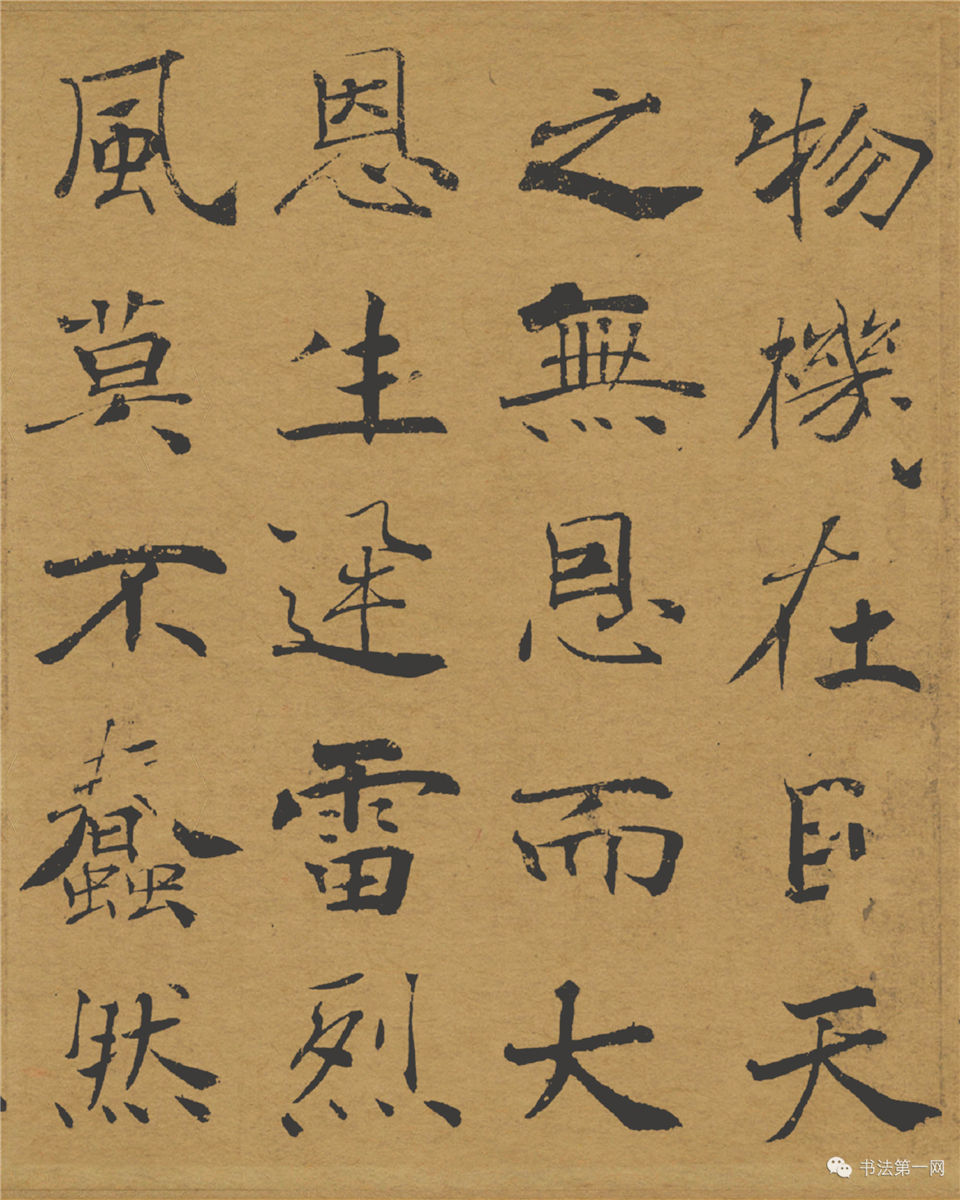 物機在目天
之無恩而大
恩生迅雷烈
風莫不蠢然
书法第一网